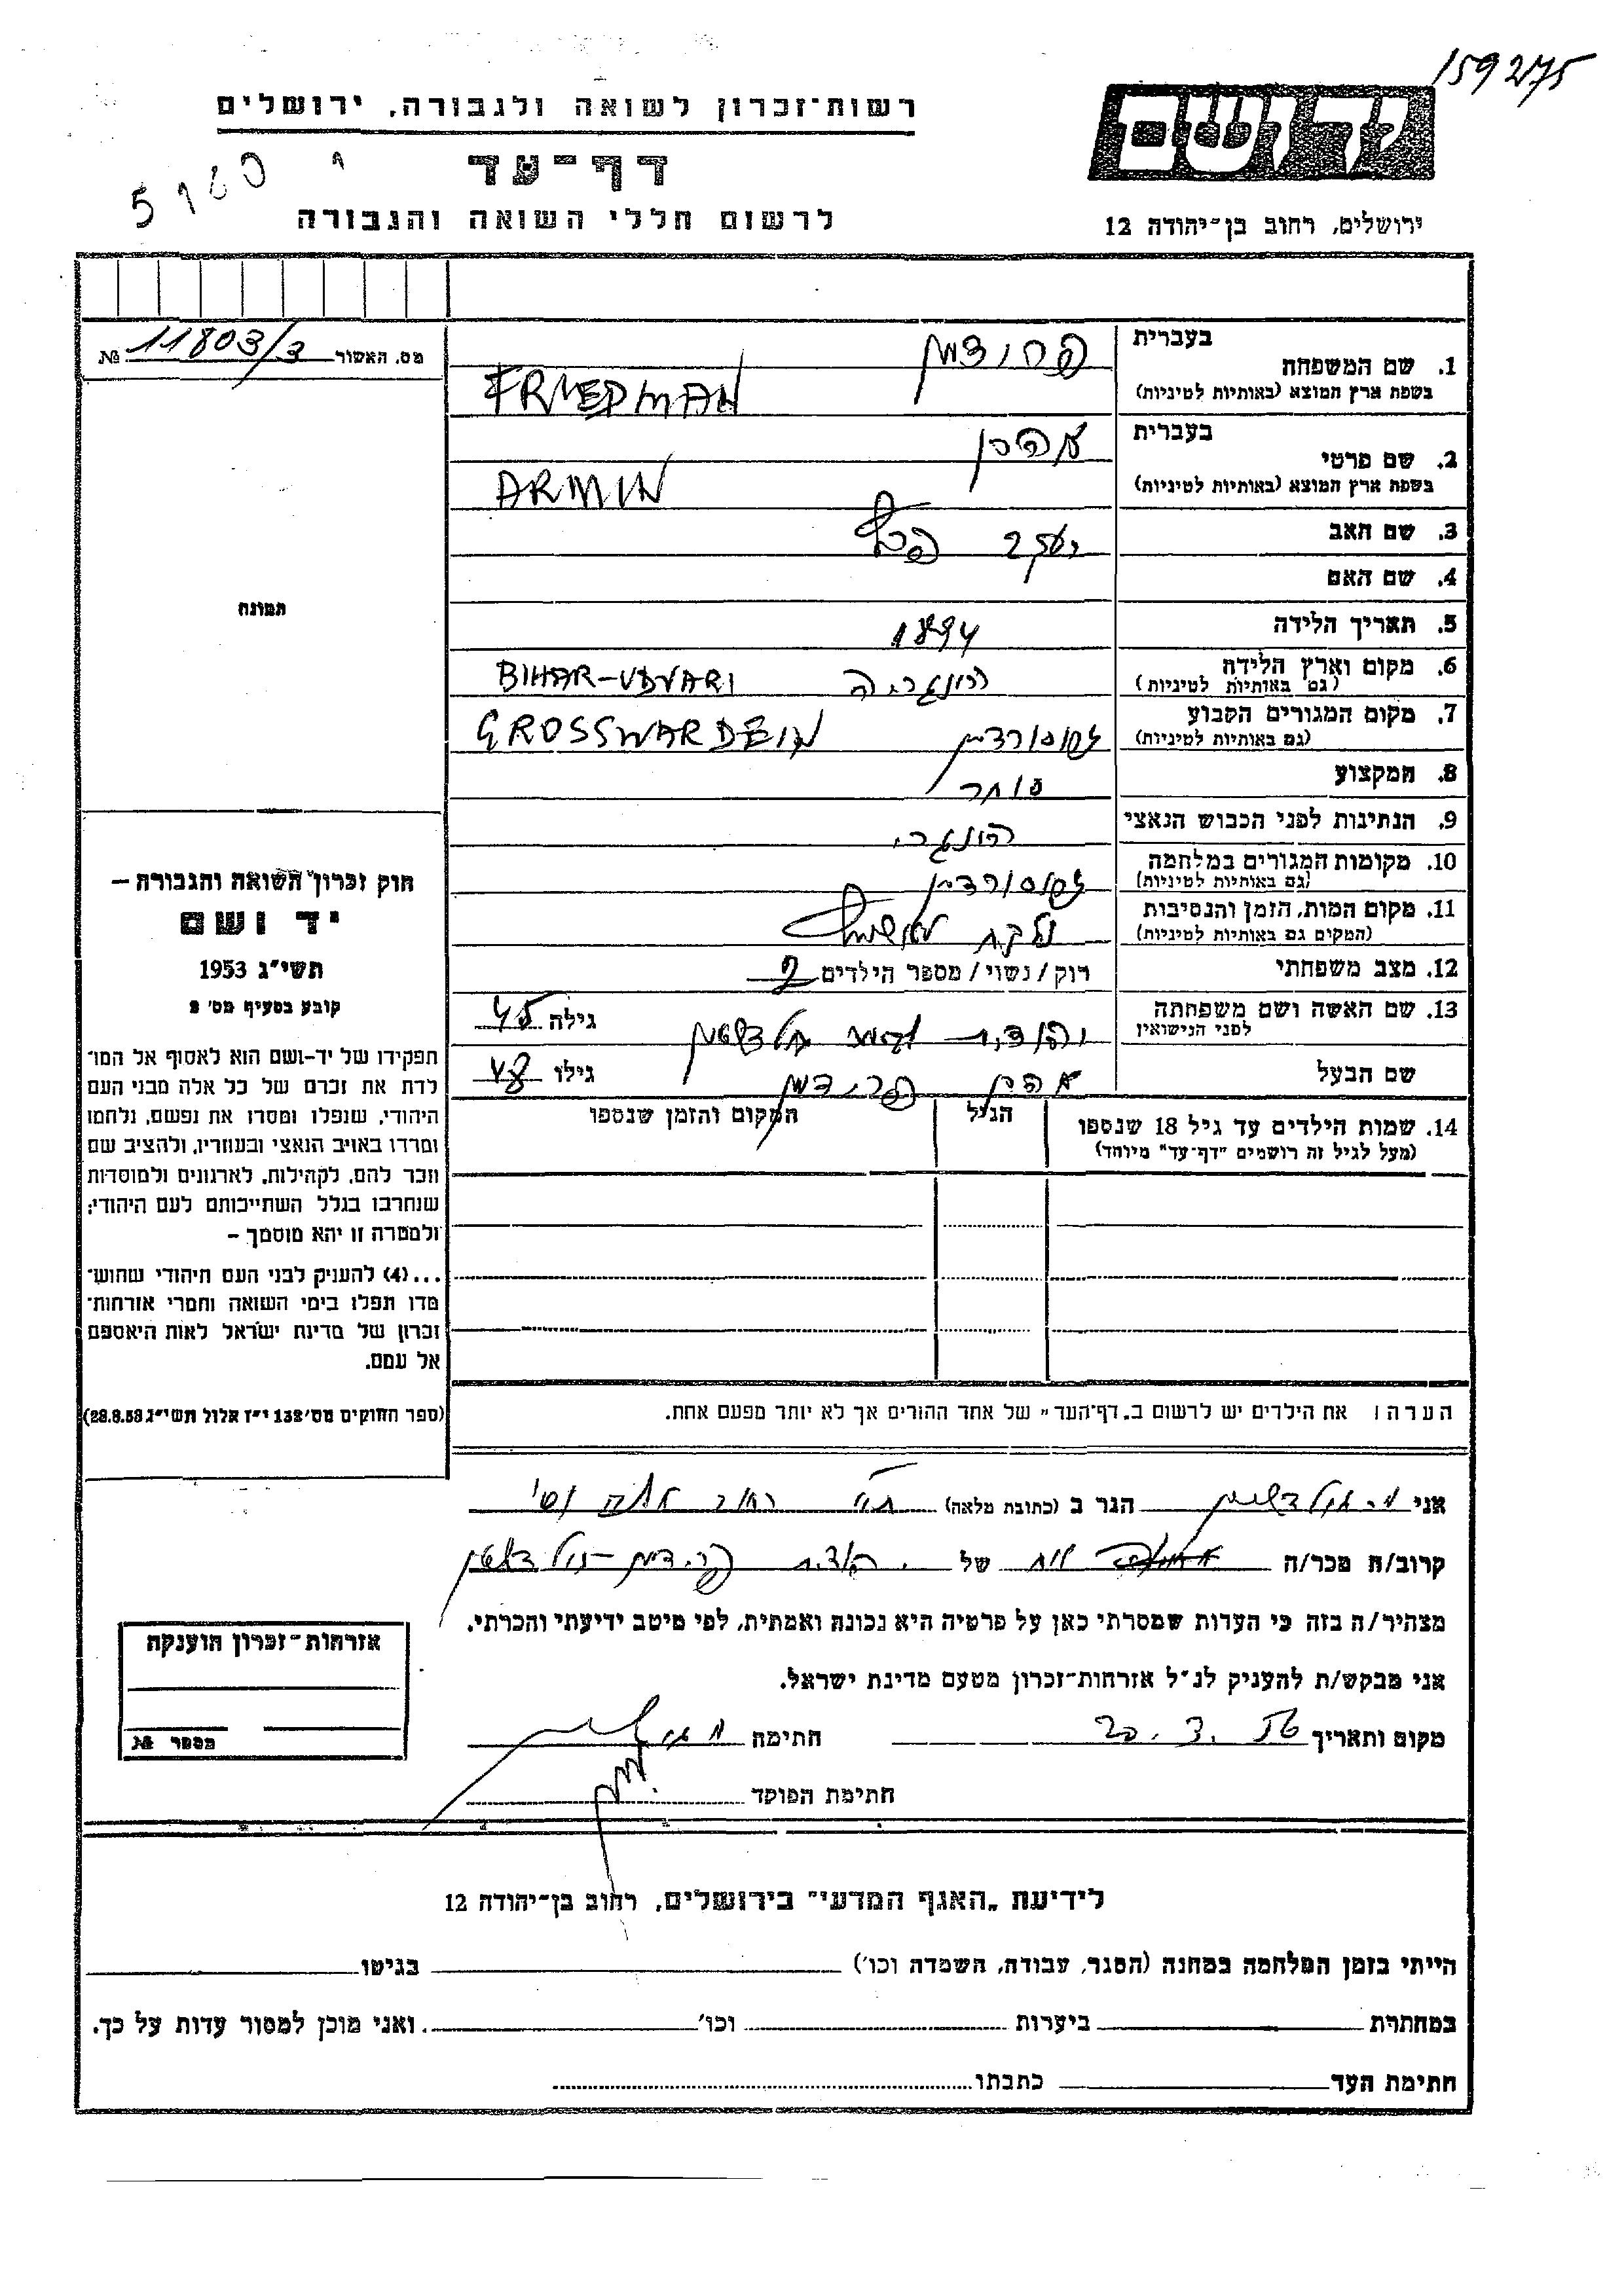 159275
רשות־זכרון לשואה ולגבורה, ירושלים
יד ושם
דף־עד
לרשום חללי השואה והגבורה
ירושלים, רחוב בן־יהודה 12
מס. האשור 11803/3 №
בעברית
1. שם המשפחה פרידמן
בשפת ארץ המוצא (באותיות לטיניות) FRIEDMAN
בעברית
2. שם פרטי אהרן
בשפת ארץ המוצא (באותיות לטיניות) ARMIN
3. שם האב יעקב
4. שם האם
5. תאריך הלידה 1894
6. מקום וארץ הלידה הונגריה BIHAR-UDVARI
(גם באותיות לטיניות)
7. מקום המגורים הקבוע גרוסורדיין GROSSWARDEIN
(גם באותיות לטיניות)
8. המקצוע סוחר
9. הנתינות לפני הכבוש הנאצי הונגרי
10. מקומות המגורים במלחמה גרוסורדיין
(גם באותיות לטיניות)
11. מקום המות, הזמן והנסיבות נלקח לאושויץ
(המקום גם באותיות לטיניות)
12. מצב משפחתי רוק/נשוי/ מספר הילדים 2
13. שם האשה ושם משפחתה יהודית גולדשטיין גילה 45
לפני הנישואין
שם הבעל אהרן פרידמן גילו 48
14. שמות הילדים עד גיל 18 שנספו הגיל המקום והזמן שנספו
(מעל לגיל זה רושמים "דף־עד" מיוחד)
הערה: את הילדים יש לרשום ב„דף־העד" של אחד ההורים אך לא יותר מפעם אחת.
תמונה
חוק זכרון השואה והגבורה –
יד ושם
תשי"ג 1953
קובע בסעיף מס' 2
תפקידו של יד־ושם הוא לאסוף אל המו־
לדת את זכרם של כל אלה מבני העם
היהודי, שנפלו ומסרו את נפשם, נלחמו
ומרדו באויב הנאצי ובעוזריו, ולהציב שם
וזכר להם, לקהילות, לארגונים ולמוסדות
שנחרבו בגלל השתייכותם לעם היהודי;
ולמטרה זו יהא מוסמך –
...(4) להעניק לבני העם היהודי שהוש־
מדו ונפלו בימי השואה והמרי אזרחות־
זכרון של מדינת ישראל לאות היאספם
אל עמם.
(ספר החוקים מס' 132 י"ז אלול תשי"ג 28.8.53)
אני מ. גולדשטיין הגר ב (כתובת מלאה) רחוב
קרוב/ה מכר/ה אח של יהודית פרידמן–גולדשטיין
מצהיר/ה בזה כי העדות שמסרתי כאן על פרטיה היא נכונה ואמתית, לפי מיטב ידיעתי והכרתי.
אני מבקש/ת להעניק לנ"ל אזרחות־זכרון מטעם מדינת ישראל.
מקום ותאריך חתימה
חתימת הפוקד
אזרחות־זכרון הוענקה
מספר №
לידיעת „האגף המדעי" בירושלים, רחוב בן־יהודה 12
הייתי בזמן המלחמה במחנה (הסגר, עבודה, השמדה וכו') בגיטו
במחתרת ביערות וכו' ואני מוכן למסור עדות על כך.
חתימת העד כתבתו